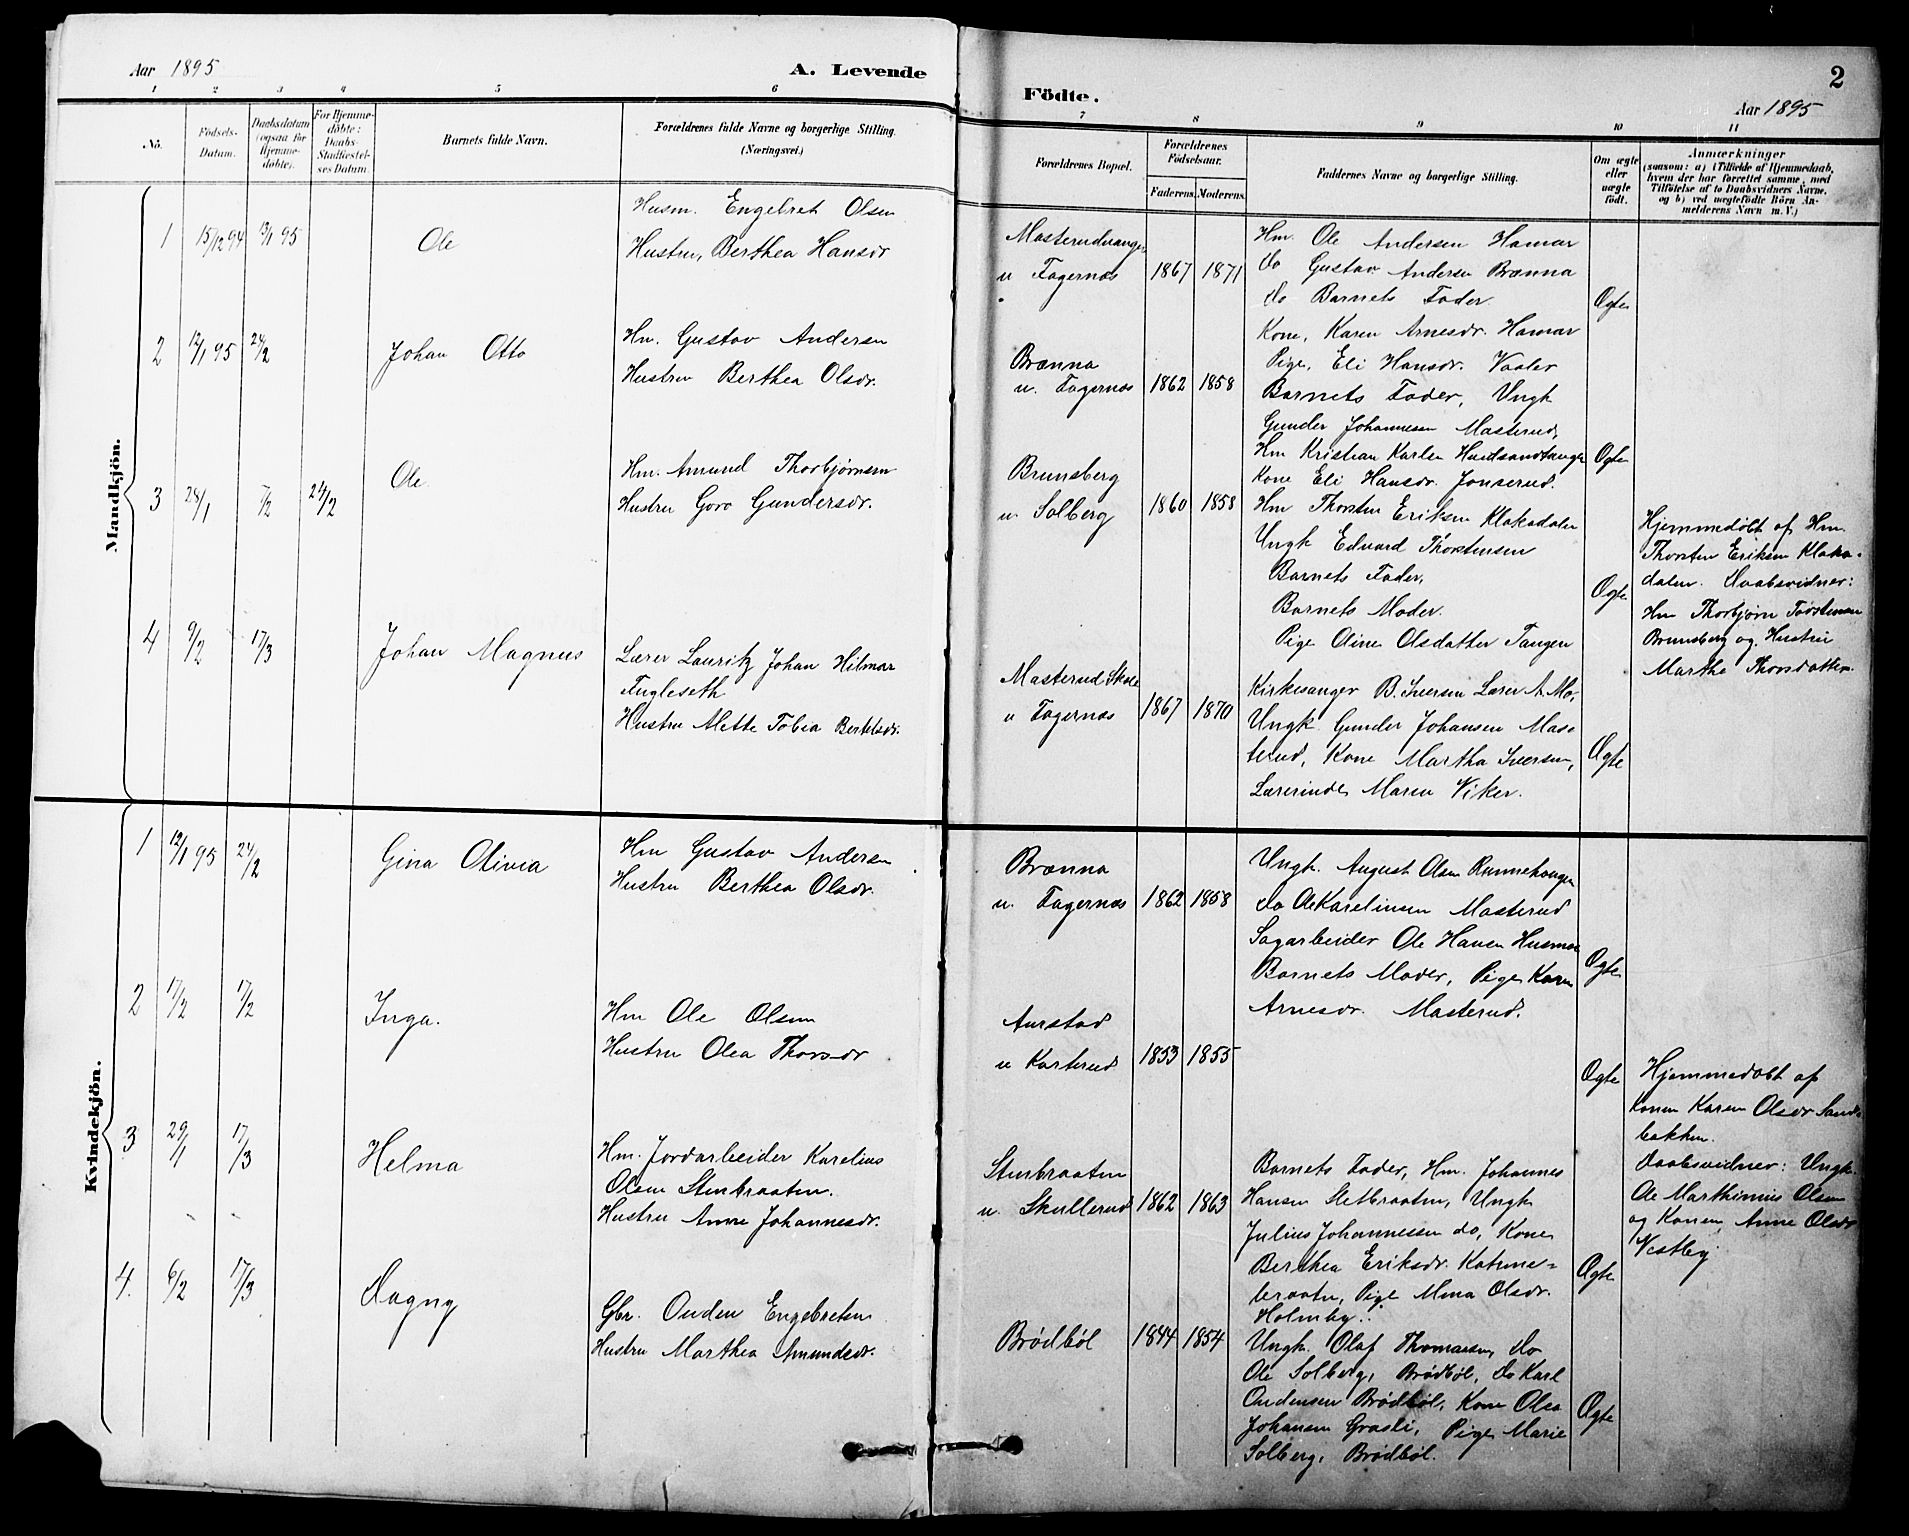 Aar 1895
A. Levende
1 2 3 4 5 6
No.
Födsels-
Datum.
Daabsdatum
(ogsaa for
Hjemme-
døbte).
For Hjemme-
døbte:
Daabs-
Stadfæstel-
ses Datum.
Barnets fulde Navn.
Forældrenes fulde Navne og borgerlige Stilling.
(Næringsvei.)
Mandkjön.
1 15/12 94 13/1 95 Ole
Husm. Engebret Olsen
Hustru, Berthea Hansdr
2 12/1 95 24/2 Johan Otto
Hm. Gustav Andersen
Hustru Berthea Olsdr.
3 28/1 7/2 24/2 Ole
Hm. Amund Thorbjørnsen
Hustru Goro Gundersdr.
4 9/2 17/3 Johan Magnus
Lærer Lauritz Johan Hilmar
Fugleseth
Hustru Mette Tobia Bertelsdr.
Kvindekjön.
1 12/1 95 24/2 Gina Olivia
Hm Gustav Andersen
Hustru Berthea Olsdr.
2 17/2 17/2 Inga.
Hm Ole Olsen
Hustru Olea Thorsdr
3 29/1 17/3 Helma
Hm. Jordarbeider Karelius
Olsen Stenbraaten.
Hustru Anne Johannesdr.
4. 6/2 17/3 Dagny
Gbr. Ouden Engebretsen
Hustru Marthea Amundsdr.
Födte.
2
Aar 1895
7 8 9 10 11
Forældrenes Bopæl.
Forældrenes
Födselsaar.
Faderens. Moderens.
Faddernes Navne og borgerlige Stilling.
Om ægte
eller
uægte
födt.
Anmærkninger
(saasom: a) i Tilfælde af Hjemmedaab,
hvem der har forrettet samme, med
Tilföielse af to Daabsvidners Navne,
og b) ved uægtefödte Börn An-
melderens Navn m. V.)
Masterudvangen
u Fagernæs 1867 1871
Hm. Ole Andersen Hamar
do Gustav Andersen Brænna
do Barnets Fader.
Kone, Karen Arnesdr. Hamar
Pige, Eli Hansdr. Vaaler
Ægte
Brænna
u. Fagernæs 1862 1858
Barnets Fader, Ungk
Gunder Johannesen Masterud,
Hm Kristian Karlsen
Kone Eli Hansdr. Jonserud.
Ægte
Brunsberg
u. Solberg 1860 1858
Hm Thorsten Eriksen Klakadalen
Ungk Edvard Thorstensen
Barnets Fader,
Barnets Moder.
Pige Oline Olsdatter Tangen
Ægte
Hjemmedøbt af Hm.
Thorsten Eriksen Klaka-
dalen. Daabsvidner:
Hm Thorbjørn Torstensen
Brunsberg og Hustru
Marthe Thorsdatter.
Masterud Skole
u Fagernæs 1867 1870
Kirkesanger B. Iversen Lærer A. Mo,
Ungk. Gunder Johansen Mas-
terud, Kone Martha Iversen,
Lærerinde Maren Viker.
Ægte
Brænna
u. Fagernæs 1862 1858
Ungk. August Olsen Runnehaugen
do Ole Karelinsen Masterud
Sagarbeider Ole Hansen
Barnets Moder, Pige Karen
Arnesdr. Masterud.
Ægte
Aurstad
u Kasterud 1853 1855
Ægte
Hjemmedøbt af
Konen Karen Olsdr Sand-
bakken.
Daabsvidner: Ungk.
Ole Marthinius Olsen
og Konen, Anne Olsdr
Vestby.
Stenbraaten
u. Skullerud 1862 1863
Barnets Fader, Hm. Johannes
Hansen Sletbraaten, Ungk
Julius Johannessen do, Kone
Berthea Eriksdr.
braaten, Pige Mina Olsdr.
Holmby.
Ægte
Brödböl 1844 1854
Ungk. Olaf Thomassen, do
Ole Solberg, Brödböl, do Karl
Oudensen Brödböl, Kone Olea
Johansen Grasli, Pige Marie
Solberg, Brödböl.
Ægte